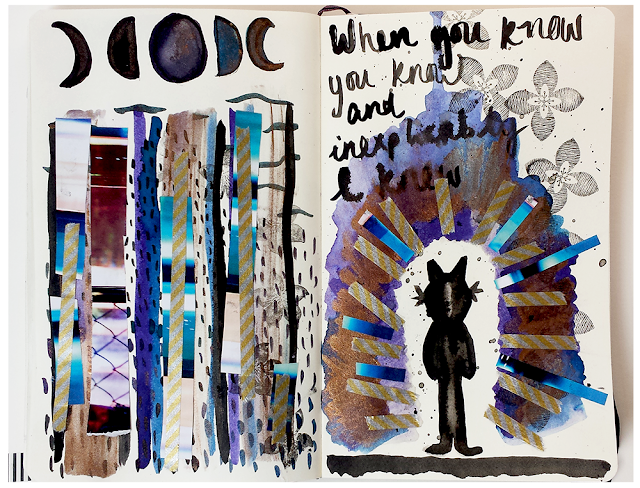 When you know
you know
and
inexplicably
I knew